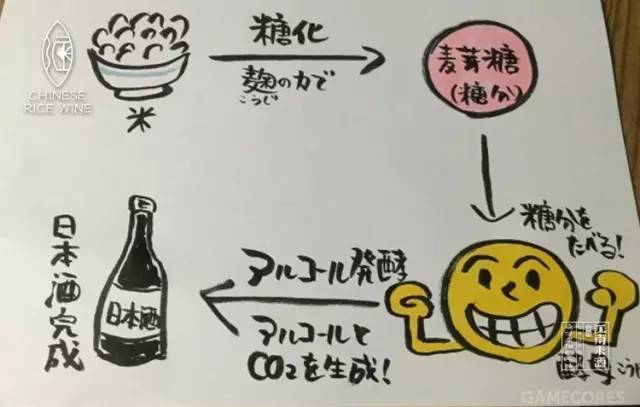 CHINESE
RICE WINE
米
糖化
麹の力で
こうじ
麦芽糖
(糖分)
糖分を
たべる!
アルコール発酵
アルコールと
CO2を生成!
日本酒
日本酒完成
江南米酒
GAMECORES